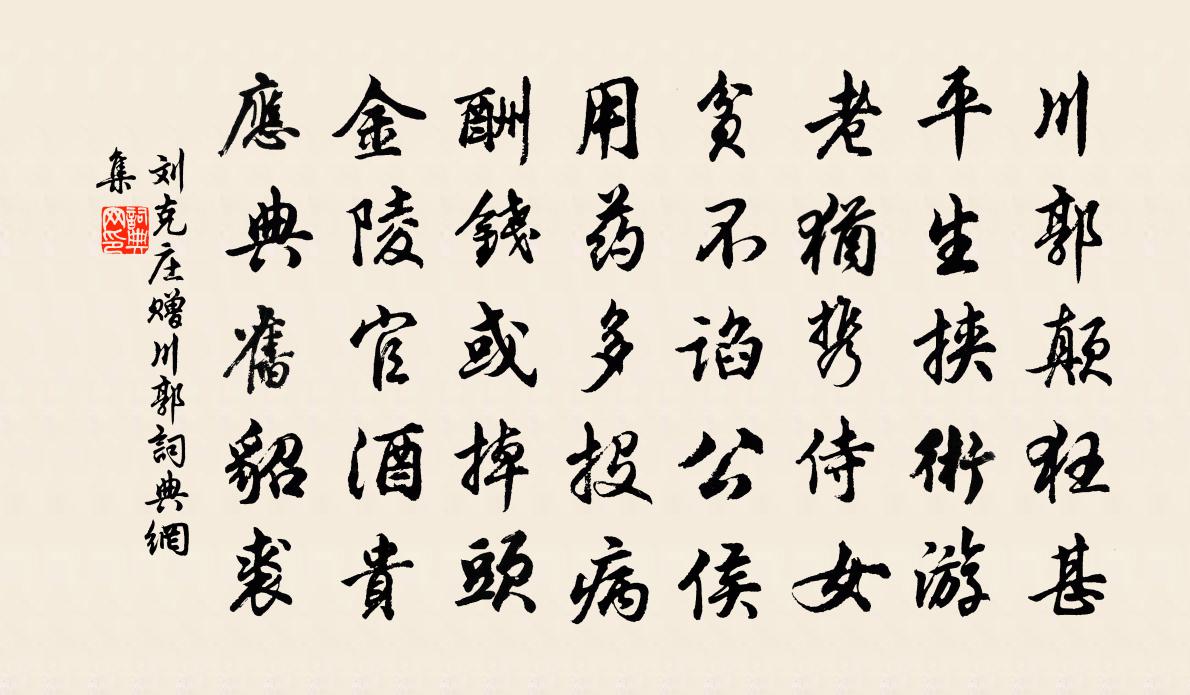 川郭颠狂甚
平生挟術游
老猶携侍女
贫不谄公侯
用药多投病
酬錢或掉頭
金陵官酒貴
應典舊貂裘
刘克庄赠川郭詞典網
集
詞典
网印